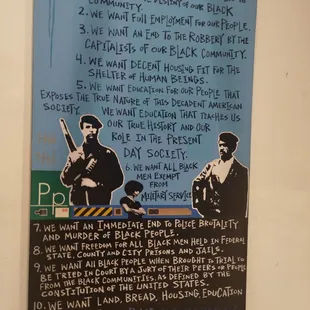 DESTINY OF OUR BLACK
COMMUNITY.
2. WE WANT FULL EMPLOYMENT FOR OUR PEOPLE.
3. WE WANT AN END TO THE ROBBERY BY THE
CAPITALISTS OF OUR BLACK COMMUNITY.
4. WE WANT DECENT HOUSING FIT FOR THE
SHELTER OF HUMAN BEINGS.
5. WE WANT EDUCATION FOR OUR PEOPLE THAT
EXPOSES THE TRUE NATURE OF THIS DECADENT AMERICAN
SOCIETY. WE WANT EDUCATION THAT TEACHES US
OUR TRUE HISTORY AND OUR
ROLE IN THE PRESENT
DAY SOCIETY.
6. WE WANT ALL BLACK
MEN EXEMPT
FROM
MILITARY SERVICE
Pp
7. WE WANT AN IMMEDIATE END TO POLICE BRUTALITY
AND MURDER OF BLACK PEOPLE.
8. WE WANT FREEDOM FOR ALL BLACK MEN HELD IN FEDERAL
STATE, COUNTY AND CITY PRISONS AND JAILS.
9. WE WANT ALL BLACK PEOPLE WHEN BROUGHT TO TRIAL TO
BE TRIED IN COURT BY A JURY OF THEIR PEERS OR PEOPLE
FROM THE BLACK COMMUNITIES, AS DEFINED BY THE
CONSTITUTION OF THE UNITED STATES.
10. WE WANT LAND, BREAD, HOUSING, EDUCATION